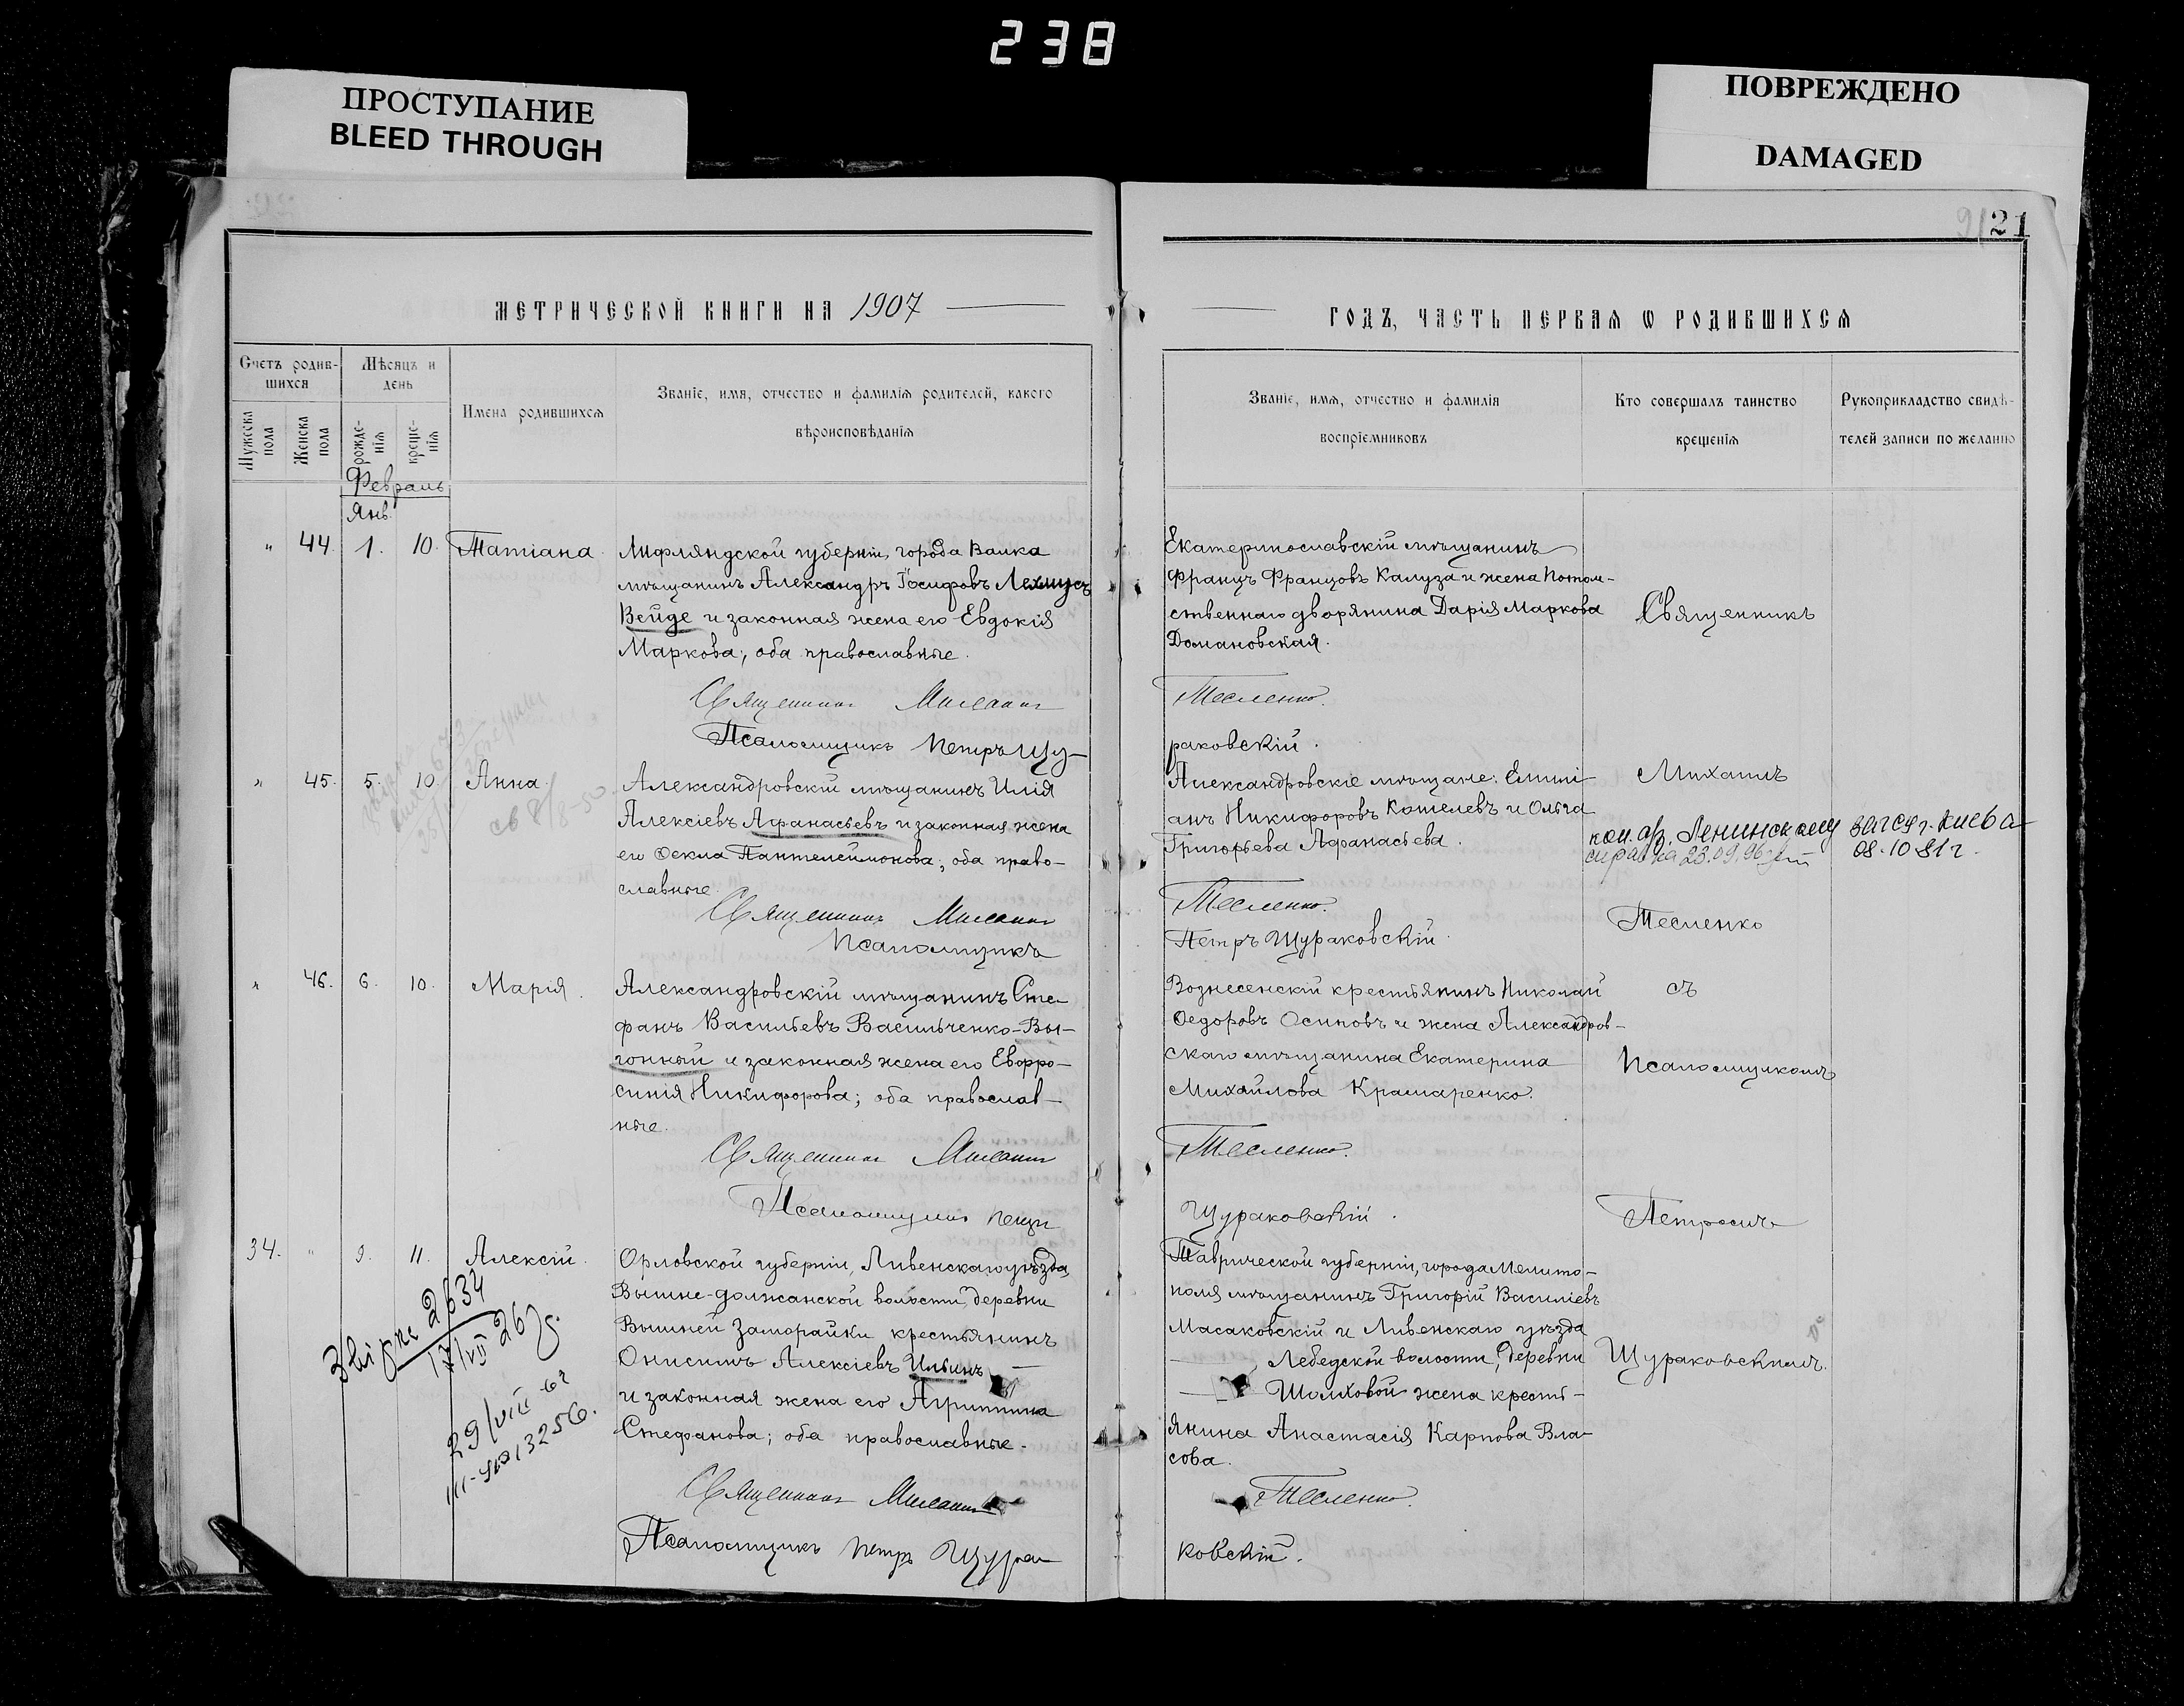 238
ПРОСТУПАНИЕ
BLEED THROUGH
ПОВРЕЖДЕНО
DAMAGED
21
МЕТРИЧЕСКОЙ КНИГИ НА 1907
ГОДЪ, ЧАСТЬ ПЕРВАЯ Ѡ РОДИВШИХСЯ
Счетъ родив-
шихся
Мужеска пола
Женска пола
Мѣсяцъ и
день
рожде-
нія
креще-
нія
Имена родившихся
Званіе, имя, отчество и фамилія родителей, какого
вѣроисповѣданія
Званіе, имя, отчество и фамилія
воспріемниковъ
Кто совершалъ таинство
крещенія
Рукоприкладство свидѣ-
телей записи по желанію
Февраль
Янв.
" 44. 1. 10. Татіана
Лифляндской губерніи, города Валка
мѣщанинъ Александръ Іосифовъ
Вейде и законная жена его Евдокія
Маркова; оба православные.
Священникъ Михаилъ
Псаломщикъ Петръ Щу-
Екатеринославскій мѣщанинъ
Францъ Францовъ Калуза и жена потом-
ственнаго дворянина Дарія Маркова
Домановская.
Тесленко.
раковскій.
Священникъ
" 45. 5. 10. Анна
Александровскій мѣщанинъ Илія
Алексіевъ Афанасьевъ и законная жена
его Ѳекла Пантелеимонова; оба право-
славные.
Священникъ Михаилъ
Псаломщикъ
Александровскіе мѣщане: Емилі-
анъ Никифоровъ Кошелевъ и Ольга
Григорьева Афанасьева.
Тесленко.
Петръ Щураковскій
Михаилъ
Ленинскому загсу г. Киева
справка 23.09.96
08.10.81 г.
Тесленко
" 46. 6. 10. Марія.
Александровскій мѣщанинъ Сте-
фанъ Васильевъ Васильченко-Вы-
гонный и законная жена его Евфро-
синія Никифорова; оба православ-
ные.
Священникъ Михаилъ
Псаломщикъ Петръ
Вознесенскій крестьянинъ Николай
Ѳедоровъ Осиповъ и жена Александров-
скаго мѣщанина Екатерина
Михайлова Крамаренко.
Тесленко.
Щураковскій.
съ
Псаломщикомъ
Петромъ
34. " 9. 11. Алексій.
Орловской губерніи, Ливенскаго уѣзда,
Вышне-должанской волости, деревни
Вышней Заморайки крестьянинъ
Онисимъ Алексіевъ Ильинъ —
и законная жена его Агриппина
Стефанова; оба православные.
Священникъ Михаилъ
Псаломщикъ Петръ Щура-
Таврической губерніи, города Мелито-
поля мѣщанинъ Григорій Василіевъ
Масаковскій и Ливенскаго уѣзда
Лебедской волости, деревни
жена кресть-
янина Анастасія Карпова Вла-
сова.
Тесленко.
ковскій.
Щураковскимъ.
2634
17/VII 26
29/VIII